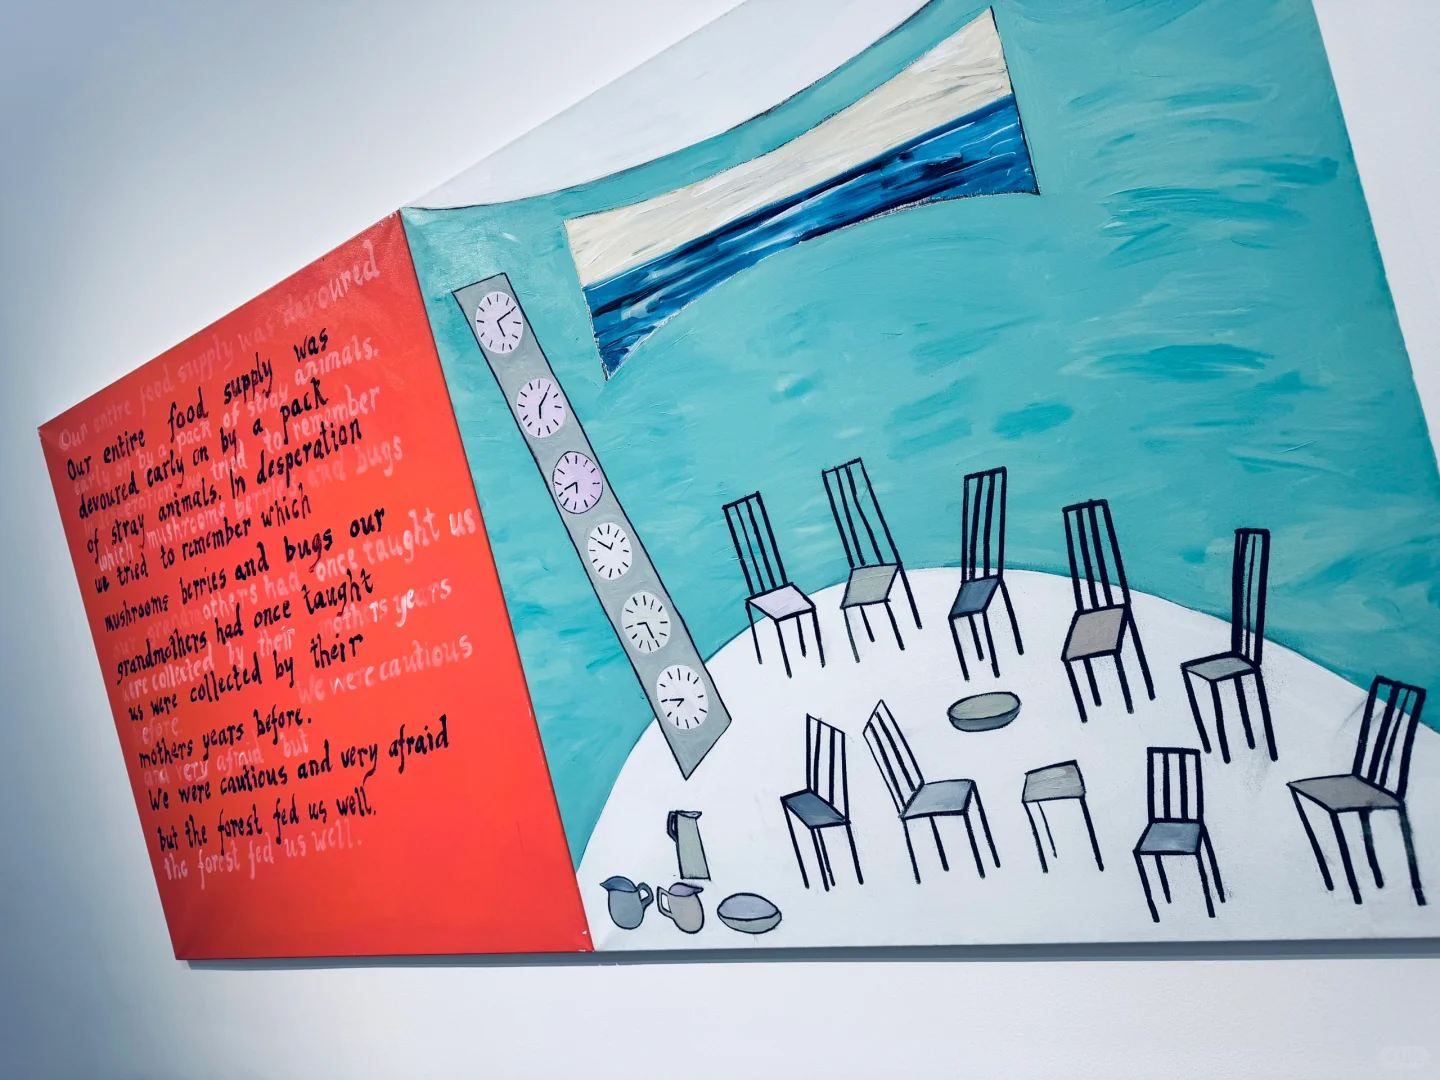 Our entire food supply was
devoured early on by a pack
of stray animals. In desperation
we tried to remember which
mushrooms berries and bugs our
grandmothers had once taught
us were collected by their
mothers years before.
We were cautious and very afraid
but the forest fed us well.
Our entire food supply was devoured
early on by a pack of stray animals.
we tried to remember
which mushrooms berries and bugs
our grandmothers had once taught us
were collected by their mothers years
before We were cautious
and very afraid but
the forest fed us well.